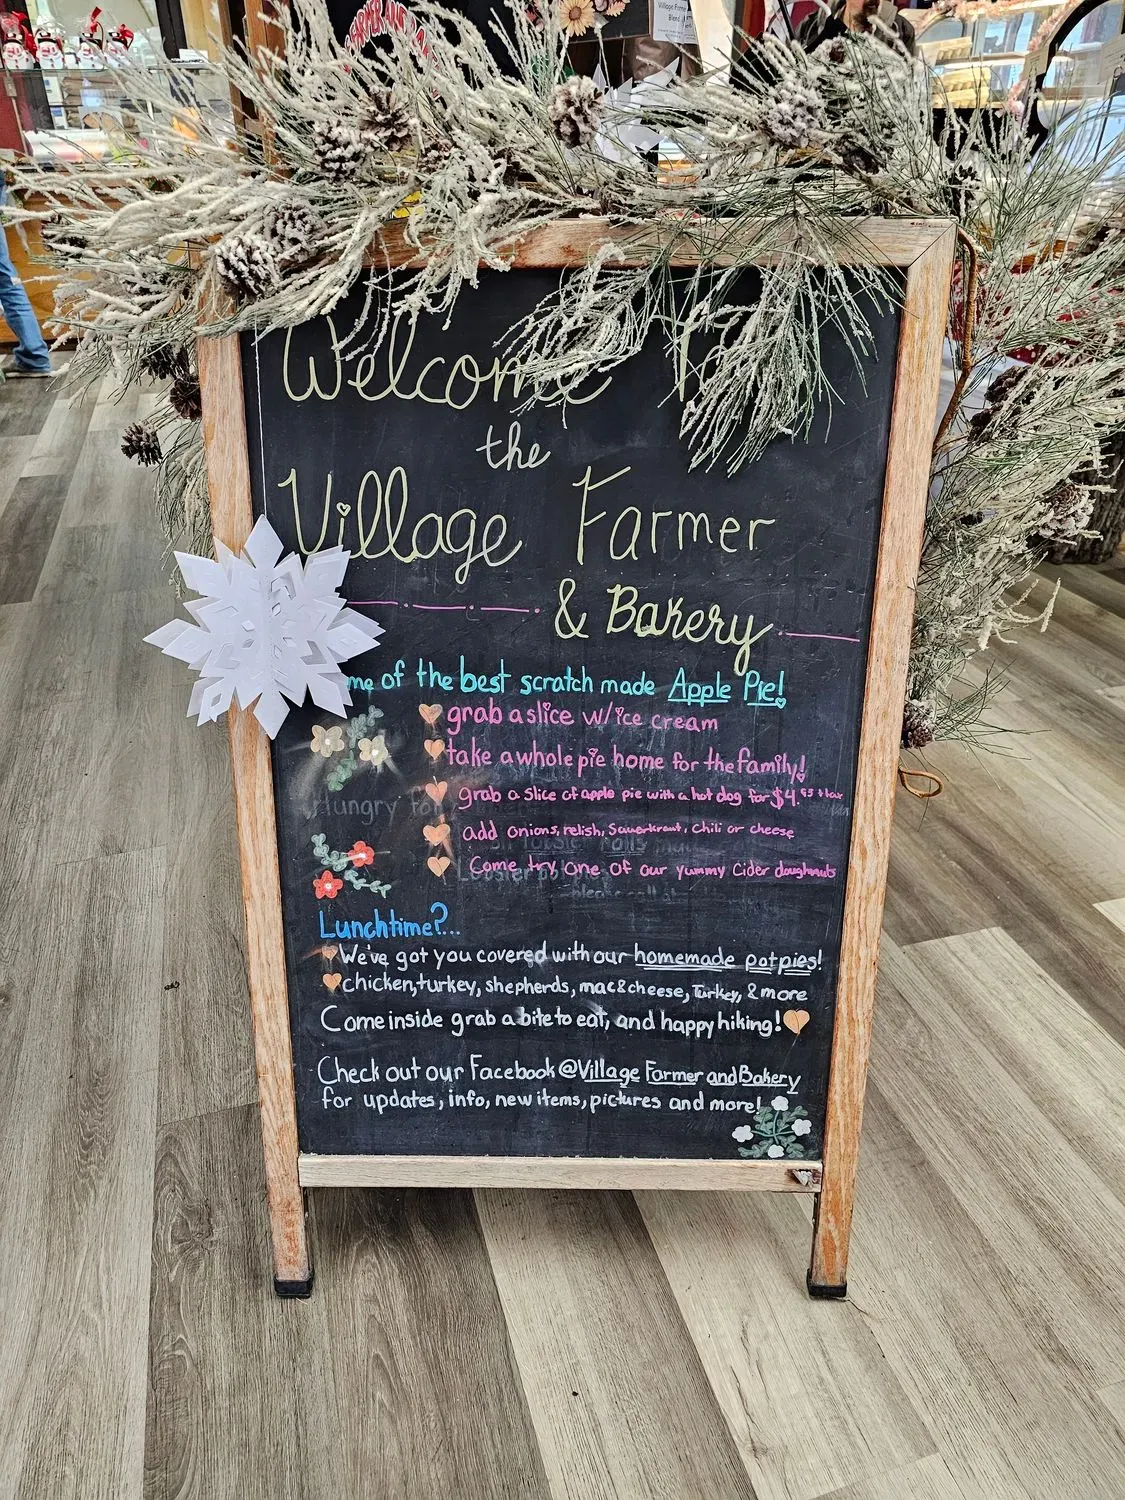 Welcome To
the
Village Farmer
& Bakery
me of the best scratch made Apple Pie!
grab a slice w/ice cream
take a whole pie home for the family!
grab a slice of apple pie with a hot dog for $4.95 + tax
add onions, relish, Sauerkraut, Chili or cheese
Come try one of our yummy Cider doughnuts
Hungry for
Lunchtime?...
We've got you covered with our homemade potpies!
chicken, turkey, shepherds, mac & cheese, Turkey, & more
Come inside grab a bite to eat, and happy hiking!
Check out our Facebook @Village Farmer and Bakery
for updates, info, new items, pictures and more!